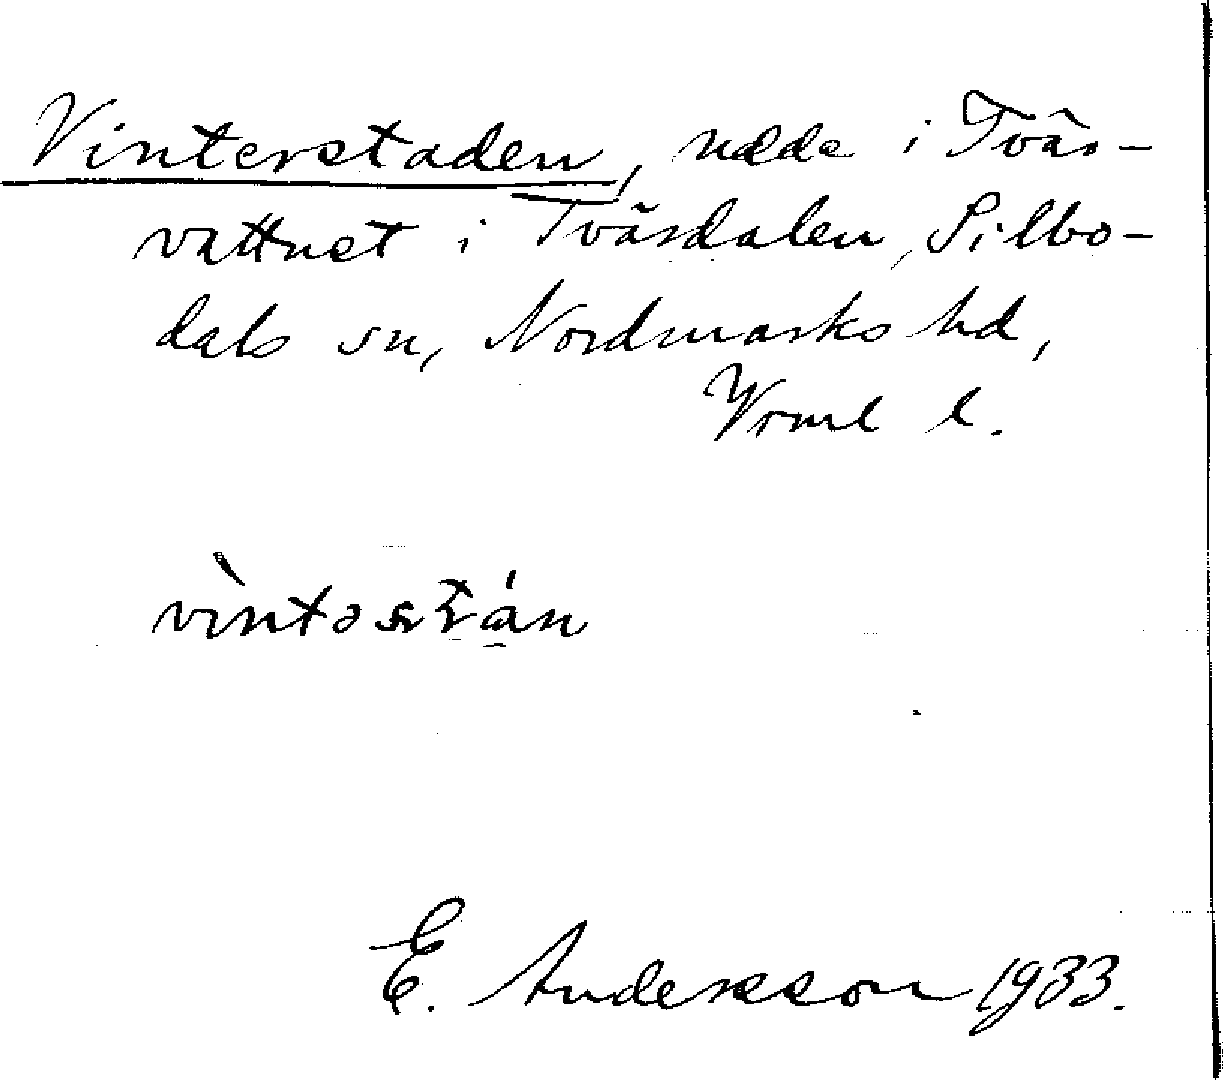 Vinterstaden, udde i Tvär-
vattnet i Tvärdalen, Silbo-
dals sn, Nordmarks hd,
Vrml l.
E. Andersson 1933.